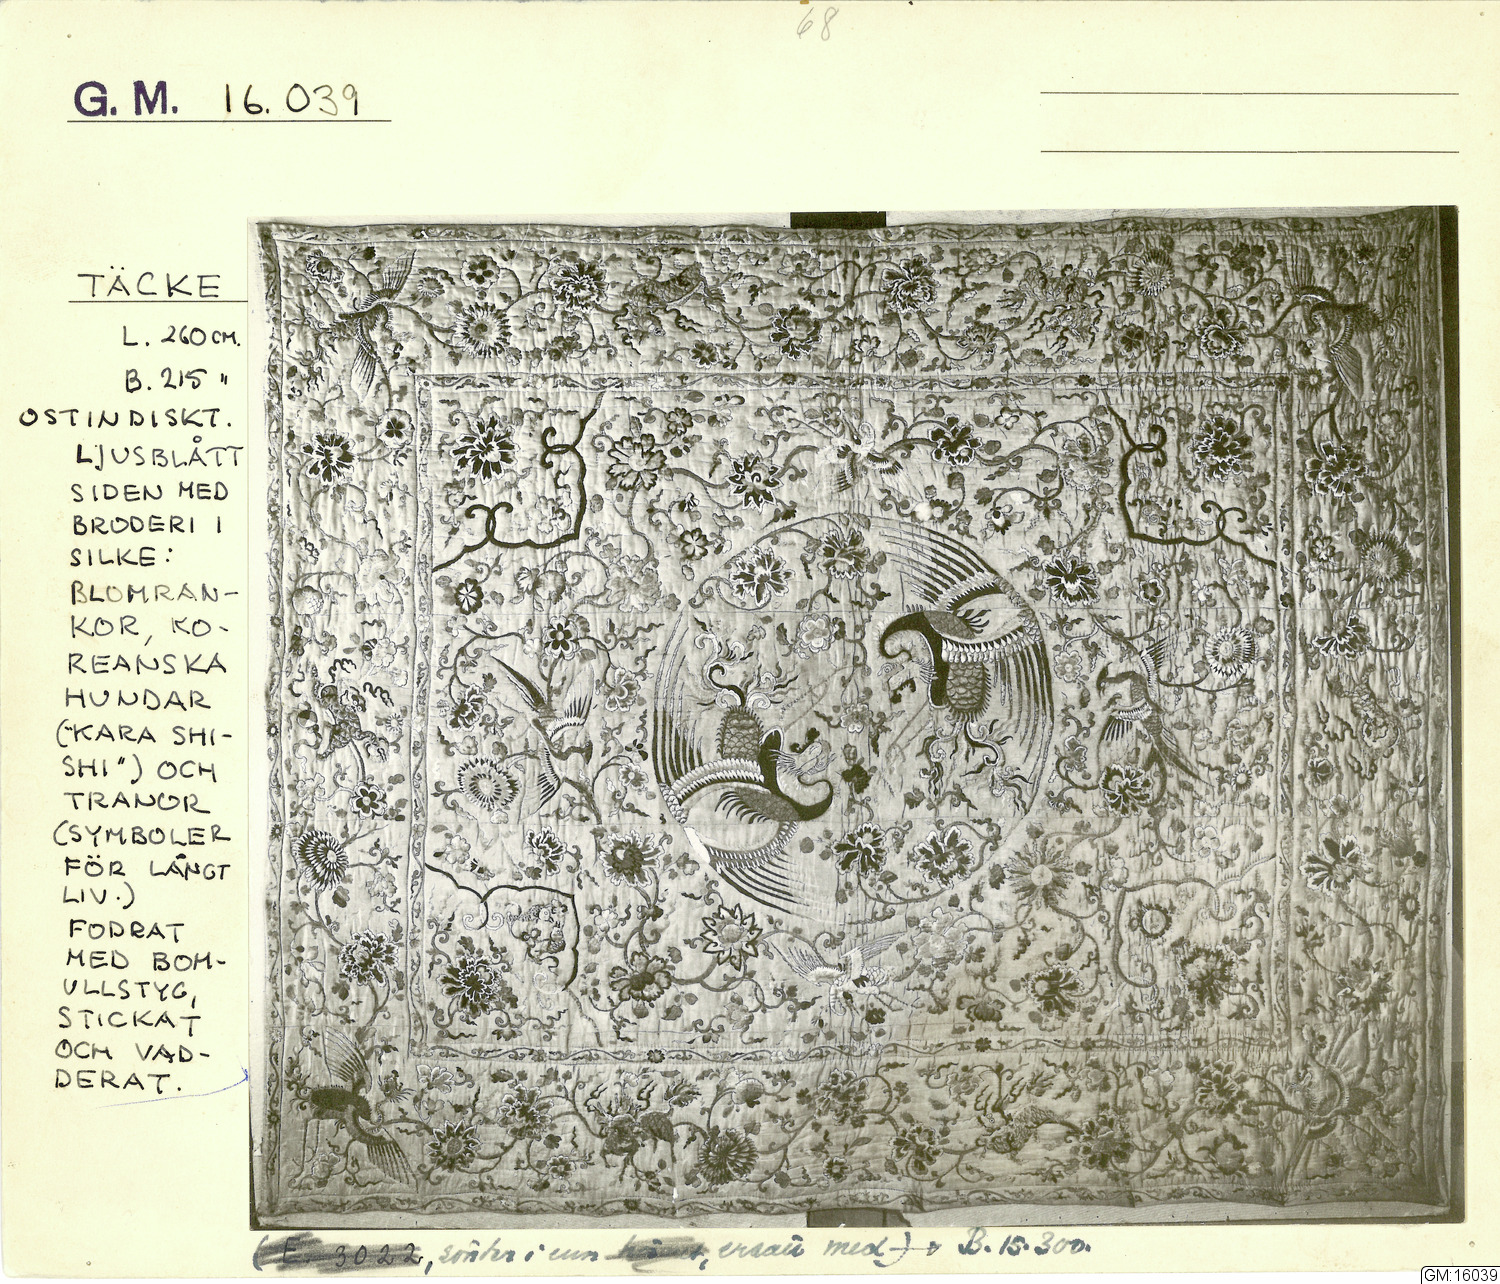 68
G. M. 16.039
TÄCKE
L. 260 CM.
B. 215 "
OSTINDISKT.
LJUSBLÅTT
SIDEN MED
BRODERI I
SILKE:
BLOMRAN-
KOR, KO-
REANSKA
HUNDAR
("KARA SHI-
SHI") OCH
TRANOR
(SYMBOLER
FÖR LÅNGT
LIV.)
FODRAT
MED BOM-
ULLSTYG,
STICKAT
OCH VAD-
DERAT.
(E. 3022, i med) B. 15.300.
GM:16039